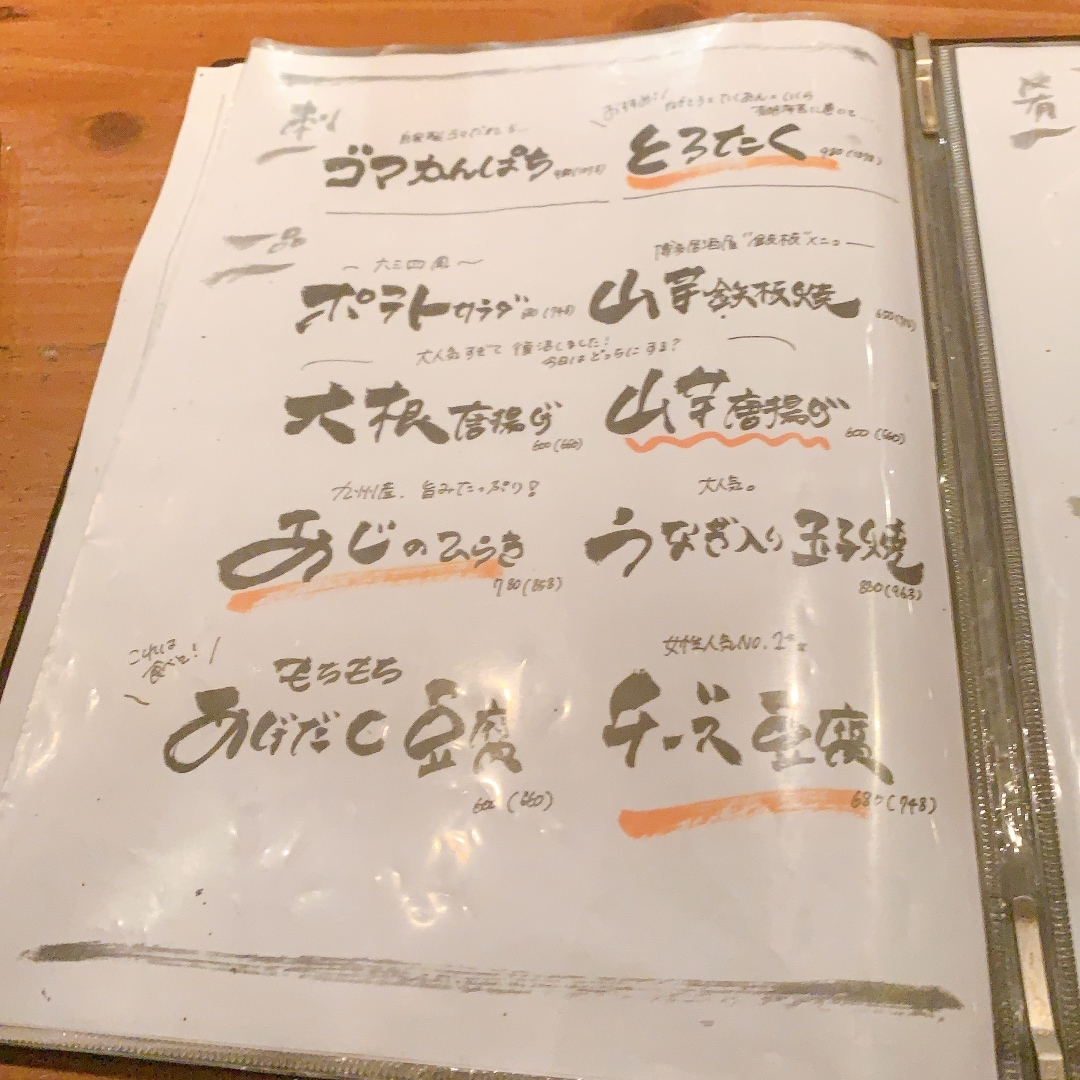 刺
ゴマかんぱち 980(1078)
おすすめ!!
とろたく 980(1078)
一品
〜六三四風〜
ポテトサラダ 680(748)
博多居酒屋"鉄板"メニュー
山芋鉄板焼 650(715)
大人気すぎて復活しました!
今日はどっちにする?
大根唐揚げ 600(660)
山芋唐揚げ 600(660)
九州産、旨みたっぷり!
あじのひらき 780(858)
大人気。
うなぎ入り玉子焼
(963)
これは
食べて!
もちもち
あげだし豆腐
600(660)
女性人気NO.1
チーズ豆腐
680(748)
肴